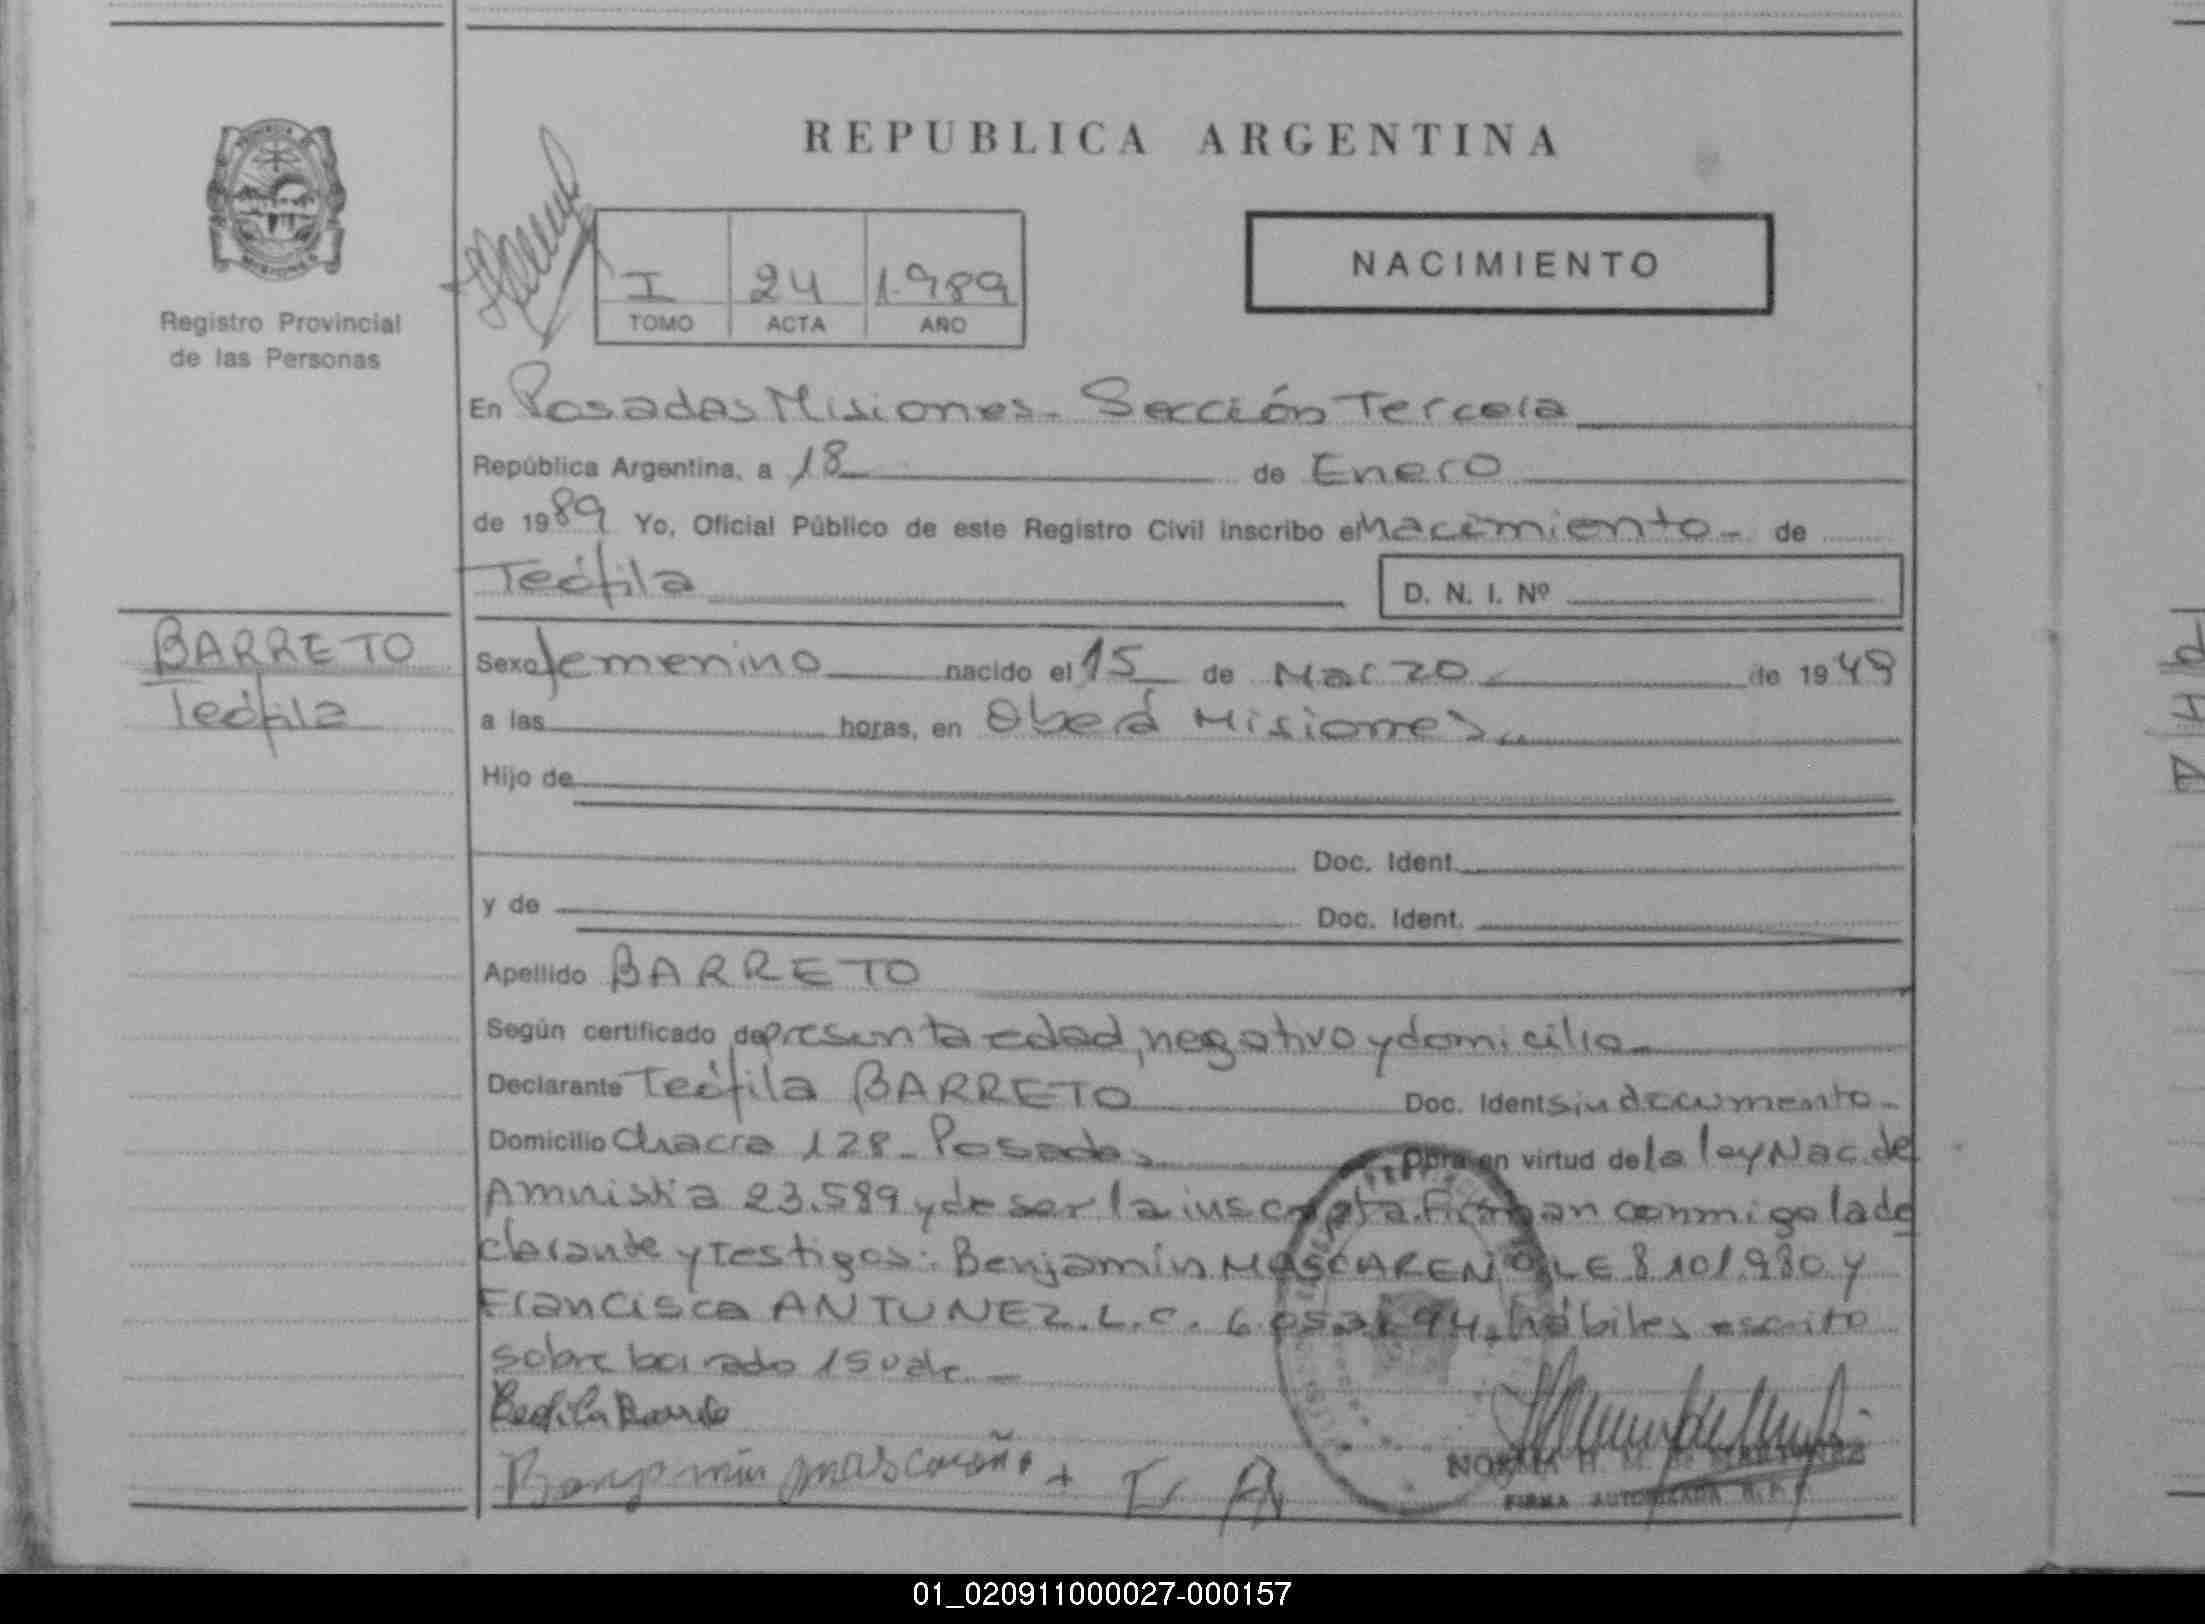 REPUBLICA ARGENTINA
NACIMIENTO
I 24 1.989
TOMO ACTA AÑO
Registro Provincial
de las Personas
En Posadas Misiones - Sección Tercera
República Argentina, a 18 de Enero
de 1989 Yo, Oficial Público de este Registro Civil inscribo el Nacimiento - de
Teófila D. N. I. Nº
BARRETO
Teófila
Sexo femenino nacido el 15 de Marzo de 1949
a las horas, en Oberá Misiones
Hijo de
Doc. Ident.
y de Doc. Ident.
Apellido BARRETO
Según certificado de presunta edad, negativo y domicilio
Declarante Teófila BARRETO Doc. Ident sin documento -
Domicilio Chacra 128 - Posadas Obra en virtud de la ley Nac. de
Amnistia 23.589 y de ser la inscripta. Firman conmigo la de
clarante y testigos: Benjamín MASCAREÑO LE 8 101.980 y
Francisca ANTUNEZ. L.C. hábiles escrito
sobre borrado 15 vale. -
Teofila Barreto
Benjamin mascareño + F A
NORMA H. M. de MARTINEZ
FIRMA AUTORIZADA R.P.P.
01_020911000027-000157